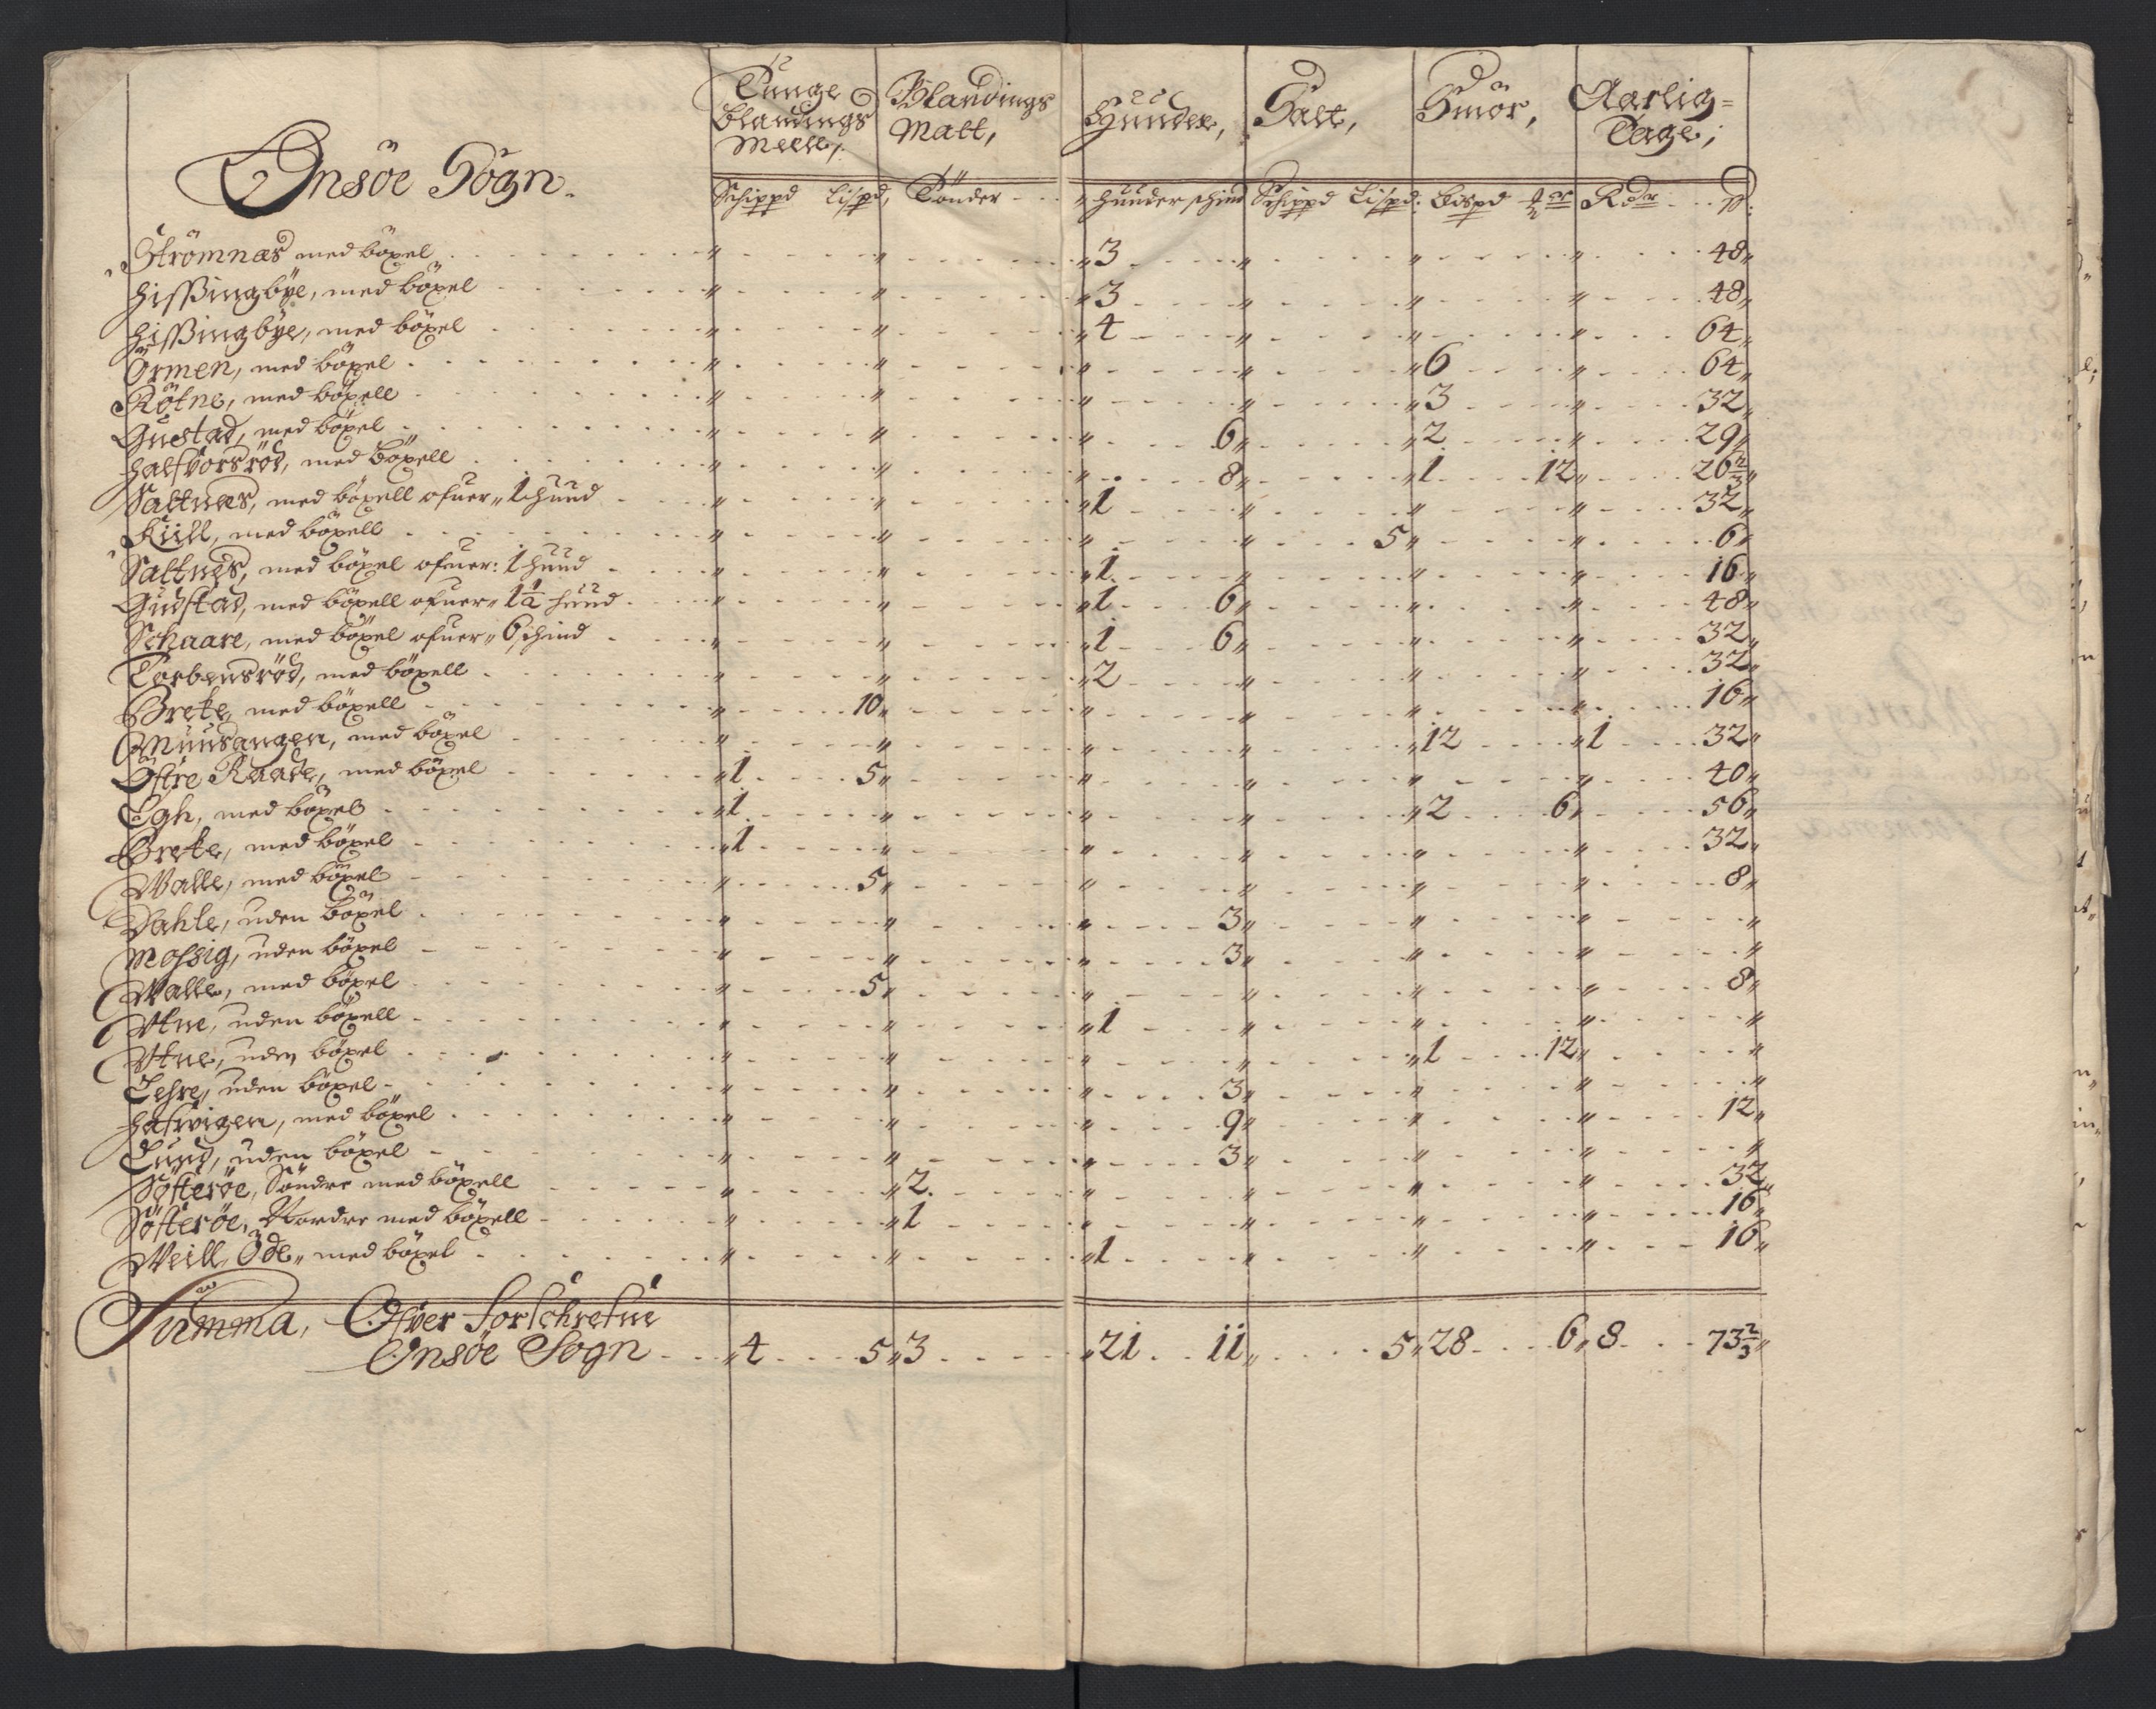 Tunge Blandings Meell,
Blandings Malt,
Huuder,
Salt,
Smör,
Aarlig= Tage,
Onsöe Sogn.
Schippd Lispd, Tönder - - - huuder schind Schippd Lispd: Bispd ℔er Rdr - - - ß:
Strömnæs med böxel . . . „ . . . „ . . . „ 3 . . . „ . . . „ . . . „ . . . 48„
Hissingbÿe, med böxel . . . „ . . . „ . . . „ 3 . . . „ . . . „ . . . „ . . . 48„
Hissingbÿe, med böxel . . . „ . . . „ . . . „ 4 . . . „ . . . „ . . . „ . . . 64„
Örmen, med böxel . . . „ . . . „ . . . „ . . . „ . . . „ 6 . . . „ . . . 64„
Rötne, med böxell . . . „ . . . „ . . . „ . . . „ . . . „ 3 . . . „ . . . 32„
Gustad, med böxel . . . „ . . . „ . . . „ . . . 6„ . . . „ 2 . . . „ . . . 29„
Halfvorsröd, med böxell . . . „ . . . „ . . . „ . . . 8„ . . . „ 1 . . . 12„ . . . 26 2/3„
Saltnæs, med böxell ofuer„ 1 huud . . . „ . . . „ . . . „ 1 . . . „ . . . „ . . . „ . . . 32„
Kiill, med böxell . . . „ . . . „ . . . „ . . . „ . . . 5„ . . . „ . . . 6„
Saltnes, med böxel ofuer: 1 huud . . . „ . . . „ . . . „ 1 . . . „ . . . „ . . . „ . . . 16„
Gudstad, med böxell ofuer„ 1 1/2 huud . . . „ . . . „ . . . „ 1 . . . 6„ . . . „ . . . „ . . . 48„
Schaare, med böxel ofuer„ 6 schind . . . „ . . . „ . . . „ 1 . . . 6„ . . . „ . . . „ . . . 32„
Torbensröd, med böxell . . . „ . . . „ . . . „ 2 . . . „ . . . „ . . . „ . . . 32„
Breke, med böxell . . . „ . . . 10„ . . . „ . . . „ . . . „ . . . „ . . . 16„
Muusangen, med böxel . . . „ . . . „ . . . „ . . . „ . . . „ 12 . . . „ 1 . . . 32„
Östre Raade, med böxel . . . „ 1 . . . 5„ . . . „ . . . „ . . . „ . . . „ . . . 40„
Egh, med böxel . . . „ 1 . . . „ . . . „ . . . „ . . . „ 2 . . . 6„ . . . 56„
Breke, med böxel . . . „ 1 . . . „ . . . „ . . . „ . . . „ . . . „ . . . 32„
Walle, med böxel . . . „ . . . 5„ . . . „ . . . „ . . . „ . . . „ . . . 8„
Dahle, uden böxel . . . „ . . . „ . . . „ . . . 3„ . . . „ . . . „ . . . „
Mossig, uden böxel . . . „ . . . „ . . . „ . . . 3„ . . . „ . . . „ . . . „
Walle, med böxel . . . „ . . . 5„ . . . „ . . . „ . . . „ . . . „ . . . 8„
Utne, uden böxell . . . „ . . . „ . . . „ 1 . . . „ . . . „ . . . „ . . . „
Utne, uden böxel . . . „ . . . „ . . . „ . . . „ . . . „ 1 . . . 12„ . . . „
Lehre, uden böxel . . . „ . . . „ . . . „ . . . 3„ . . . „ . . . „ . . . „
Hafwigen, med böxel . . . „ . . . „ . . . „ . . . 9„ . . . „ . . . „ . . . 12„
Lund, uden böxel . . . „ . . . „ . . . „ . . . 3„ . . . „ . . . „ . . . „
Sösteröe, Söndre med böxell . . . „ . . . „ 2 . . . „ . . . „ . . . „ . . . „ . . . 32„
Söfteröe, Nordre med böxell . . . „ . . . „ 1 . . . „ . . . „ . . . „ . . . „ . . . 16„
Weill, Öde„ med böxel . . . „ . . . „ . . . „ 1 . . . „ . . . „ . . . „ . . . 16„
Summa, Ofver forschrefne
Onsöe Sogn . . . „ 4 . . . 5„ 3 . . . „ 21 . . 11„ . . . 5„ 28 . . . 6„ 8 . . . 73 2/3„